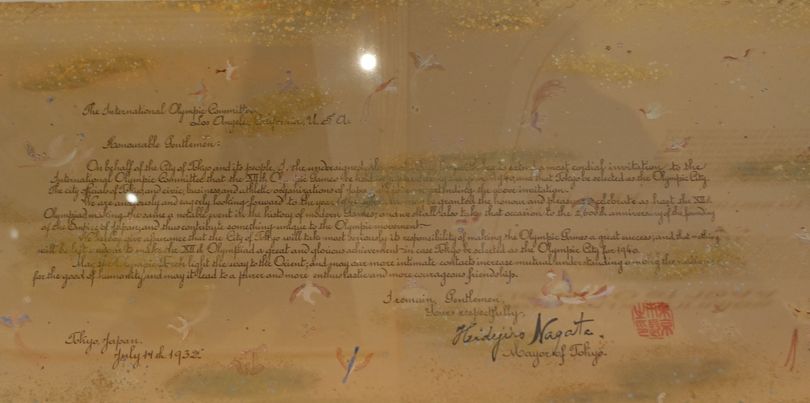 The International Olympic Committee
Los Angeles, California, U. S. A.
Honourable Gentlemen:
On behalf of the City of Tokyo and its people, I, the undersigned, a most cordial invitation to the
International Olympic Committee that the XIIth Olympic Games be held that Tokyo be selected as the Olympic City.
The city officials of Tokyo and civic, business and athletic organizations of Japan the above invitation.
We are anxiously and eagerly looking forward to the year be granted the honour and pleasure to celebrate as host the XIIth
Olympiad making the same a notable event in the history of modern Games, and we shall also take that occasion to the 2600th anniversary of the founding
of the Empire of Japan, and thus contribute something unique to the Olympic movement.
give assurance that the City of Tokyo will take most seriously its responsibility of making the Olympic Games a great success, and that nothing
will be the XIIth Olympiad a great and glorious achievement in case Tokyo be selected as the Olympic City for 1940.
May the Olympic Torch light the way to the Orient, and may our more intimate contacts increase mutual understanding among the nations
for the good of humanity, and may it lead to a purer and more enthusiastic and more courageous friendship.
I remain, Gentlemen,
Yours respectfully,
Hidejiro Nagata.
Mayor of Tokyo.
Tokyo, Japan.
July 14th, 1932.